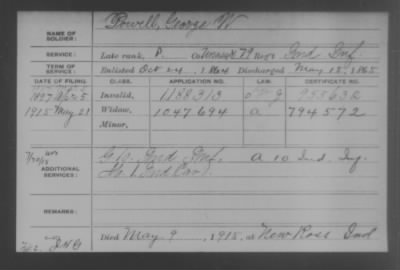 NAME OF SOLDIER: Powell, George W
SERVICE: Late rank, P. Co. 79 Reg't Ind Inf
TERM OF SERVICE: Enlisted Oct 24, 1864 Discharged May 15, 1865
DATE OF FILING. CLASS. APPLICATION NO. LAW. CERTIFICATE NO.
5 Invalid, 1188313 G
1915 May 21 Widow, 1047694 a 794572
Minor,
ADDITIONAL SERVICES: G 10 Ind Inf. A 10 Ind. Inf.
1 Ind Cav.
REMARKS:
Died May 9, 1915, at New Ross Ind